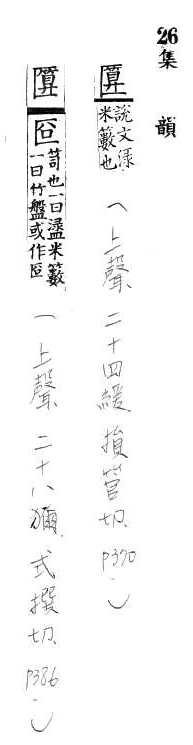 26 集 韻
匴 說文淥
米籔也
(上聲 二十四緩 損管切 P370)
匴 笥也一曰盝米籔
一曰竹盤或作
(上聲 二十八獮 式撰切 P386)